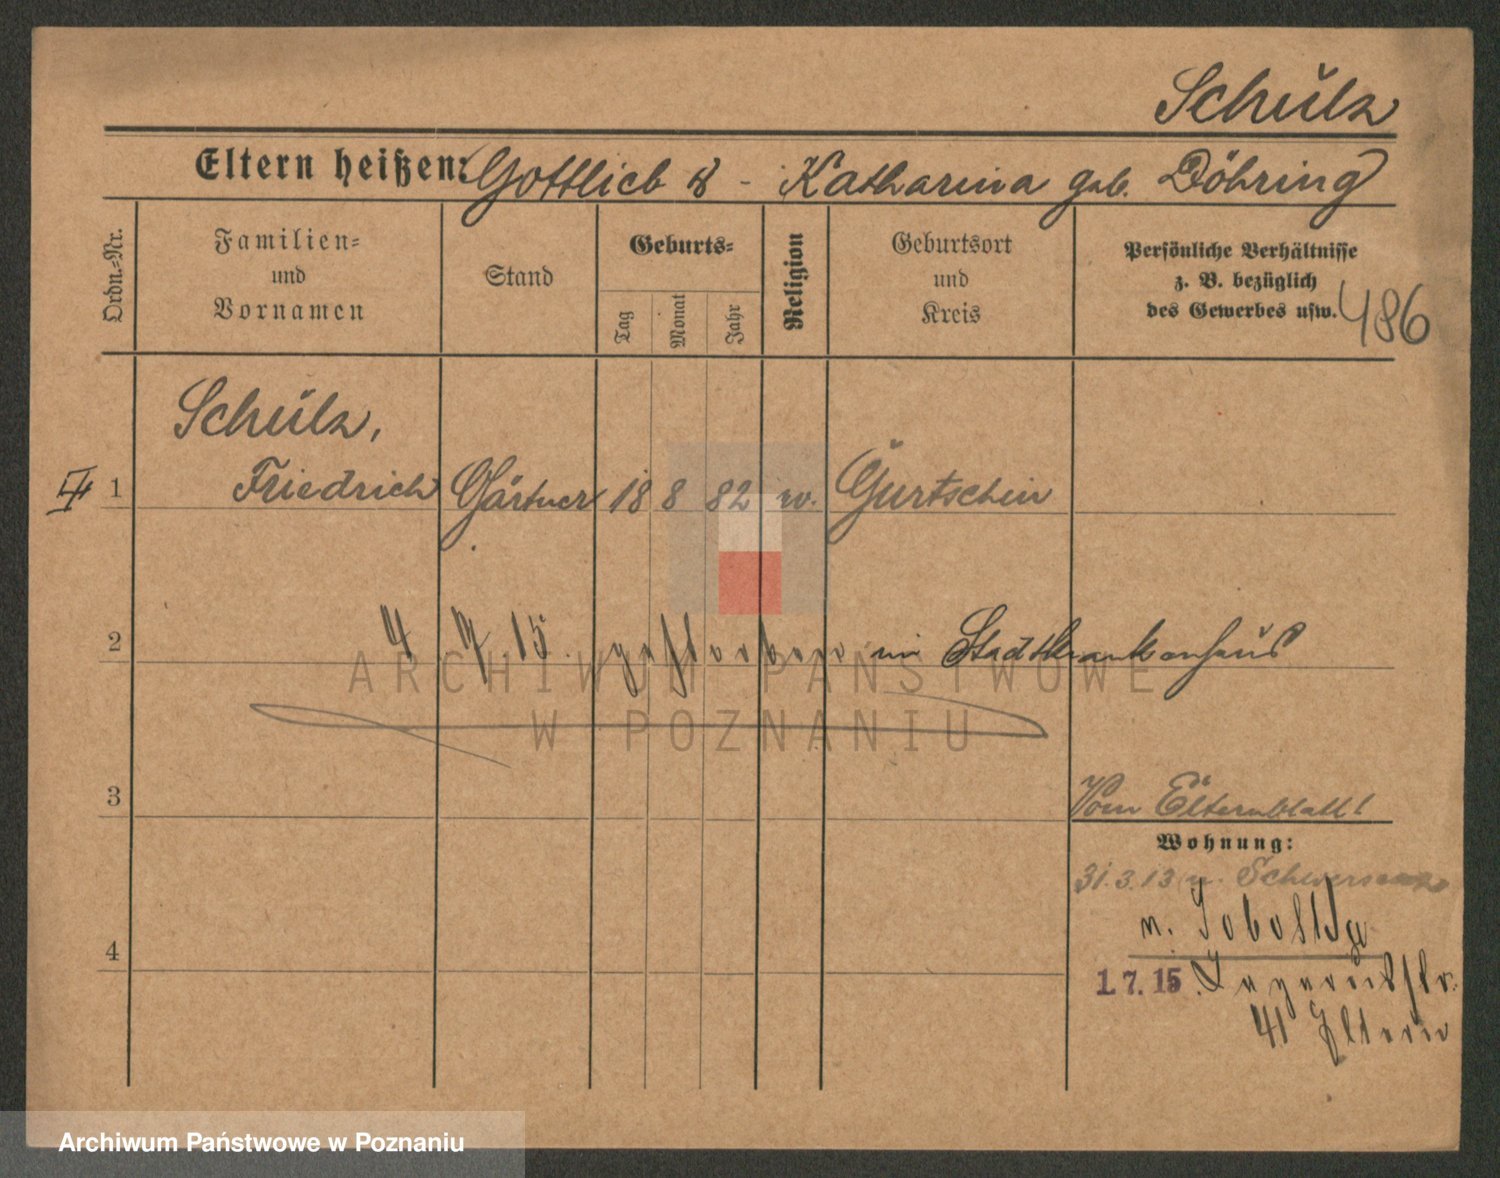 Schulz
Eltern heißen: Gottlieb & - Katharina geb. Döhring
Ordn.-Nr.
Familien-
und
Vornamen
Stand
Geburts-
Tag
Monat
Jahr
Religion
Geburtsort
und
Kreis
Persönliche Verhältnisse
z. B. bezüglich
des Gewerbes usw.
486
Schulz,
1 Friedrich Gärtner 18 8 82 ev. Gurtschin
2 4. 7. 15. gestorben im Stadtkrankenhaus
ARCHIWUM PAŃSTWOWE
W POZNANIU
3
Vom Elternblatt!
Wohnung:
31.3.13 n. Schwersenz
n.
4
1.7.15.
41 Eltern
Archiwum Państwowe w Poznaniu